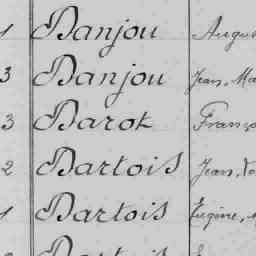 1 Banjou Augus
3 Banjou Jean, Ma
3 Barok Franço
2 Bartois Jean
1 Bartois Eugène,